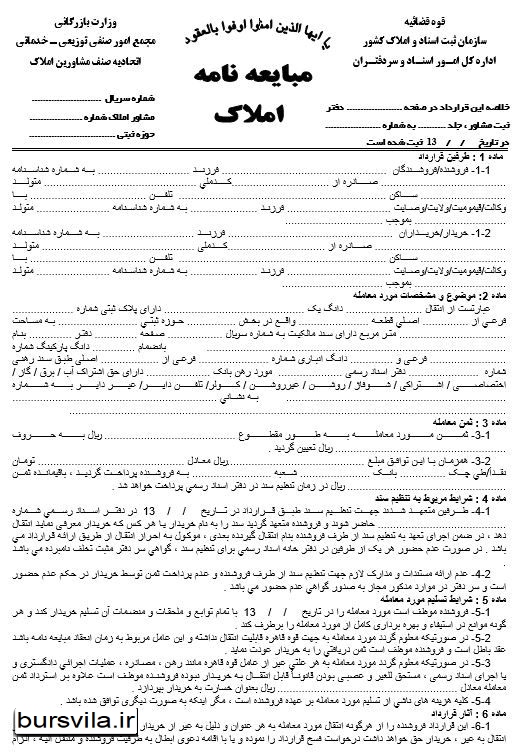 یا ایها الذین امنوا اوفوا بالعقود
قوه قضائیه
سازمان ثبت اسناد و املاک کشور
اداره کل امور اسناد و سردفتران
مبایعه نامه
املاک
وزارت بازرگانی
مجمع امور صنفی توزیعی – خدماتی
اتحادیه صنف مشاورین املاک
خلاصه این قرارداد در صفحه .................... دفتر
ثبت مشاور ، جلد .......... به شماره ....................
در تاریخ / / 13 ثبت شده است
شماره سریال ....................
مشاور املاک شماره ....................
حوزه ثبتی ....................
ماده 1 : طرفین قرارداد
1-1- فروشنده/فروشندگان .................... فرزند .................... به شماره شناسنامه
.................... صادره از .................... کدملی .................... متولد
.................... ساکن .................... تلفن .................... با
وکالت/قیمومیت/ولایت/وصایت .................... فرزند .................... به شماره شناسنامه .................... متولد
.................... بموجب ....................
1-2- خریدار/خریداران .................... فرزند .................... به شماره شناسنامه
.................... صادره از .................... کدملی .................... متولد
.................... ساکن .................... تلفن .................... با
وکالت/قیمومیت/ولایت/وصایت .................... فرزند .................... به شماره شناسنامه .................... متولد
.................... بموجب ....................
ماده 2: موضوع و مشخصات مورد معامله
عبارتست از انتقال .................... دانگ یک .................... دارای پلاک ثبتی شماره ....................
فرعی از .................... اصلی قطعه .................... واقع در بخش .................... حوزه ثبتی .................... به مساحت
.................... متر مربع دارای سند مالکیت به شماره سریال .................... صفحه .................... دفتر .................... بنام
.................... بانضمام .................... دانگ پارکینگ شماره
.................... فرعی و .................... دانگ انباری شماره .................... فرعی از .................... اصلی طبق سند رهنی
شماره .................... دفتر اسناد رسمی .................... مورد رهن بانک .................... دارای حق اشتراک آب / برق / گاز /
اختصاصی / اشتراکی / شوفاژ / روشن / غیرروشن / کولر/ تلفن دایر/ غیر دایر به شماره
.................... به نشانی ....................
ماده 3 : ثمن معامله
3-1- ثمن مورد معامله به طور مقطوع .................... ریال به حروف
.................... ریال تعیین گردید .
3-2- همزمان با این توافق مبلغ .................... ریال معادل .................... تومان
نقداً/طی چک .................... بانک .................... شعبه .................... به فروشنده پرداخت گردید ، باقیمانده ثمن
.................... ریال در زمان تنظیم سند در دفتر اسناد رسمی پرداخت خواهد شد .
ماده 4 : شرایط مربوط به تنظیم سند
4-1- طرفین متعهد شدند جهت تنظیم سند طبق قرارداد در تاریخ / / 13 در دفتر اسناد رسمی شماره
.................... حاضر شوند و فروشنده متعهد گردید سند را به نام خریدار یا هر کس که خریدار معرفی نماید انتقال
دهد ، در ضمن اجرای تعهد به تنظیم سند از طرف فروشنده بنام انتقال گیرنده بعدی ، موکول به احراز انتقال از طریق ارائه قرارداد می
باشد . در صورت عدم حضور هر یک از طرفین در دفتر خانه اسناد رسمی برای تنظیم سند ، گواهی سر دفتر مثبت تخلف نامبرده می باشد
.
4-2- عدم ارائه مستندات و مدارک لازم جهت تنظیم سند از طرف فروشنده و عدم پرداخت ثمن توسط خریدار در حکم عدم حضور
است و سر دفتر در موارد مذکور مجاز به صدور گواهی عدم حضور می باشد .
ماده 5 : شرایط تسلیم مورد معامله
5-1- فروشنده موظف است مورد معامله را در تاریخ / / 13 با تمام توابع و ملحقات و منضمات آن تسلیم خریدار کند و هر
گونه موانع در استیفاء و بهره برداری کامل از مورد معامله را برطرف کند .
5-2- در صورتیکه معلوم گردد مورد معامله به جهت قوه قاهره قابلیت انتقال نداشته و این عامل مربوط به زمان انعقاد مبایعه نامه باشد
عقد باطل است و فروشنده موظف است ثمن دریافتی را به خریدار عودت نماید .
5-3- در صورتیکه معلوم گردد مورد معامله به هر علتی غیر از عامل قوه قاهره مانند رهن ، مصادره ، عملیات اجرائی دادگستری و
یا اجرای اسناد رسمی ، مستحق للغیر و غصبی بودن قانوناً قابل انتقال به خریدار نبوده فروشنده موظف است علاوه بر استرداد ثمن
معامله معادل .................... ریال بعنوان خسارت به خریدار بپردازد .
5-4- کلیه هزینه های ناشی از تسلیم مورد معامله بر عهده فروشنده است ، مگر اینکه به صورت دیگری توافق شده باشد .
ماده 6 : آثار قرارداد
6-1- این قرارداد فروشنده را از هرگونه انتقال مورد معامله به هر عنوان و دلیل به غیر از خریدار
انتقال به غیر ، خریدار حق خواهد داشت درخواست فسخ قرارداد را نموده و یا با اقامه دعوی ابطال به طرفیت فروشنده و منتقل الیه ، الزام
bursvila.ir